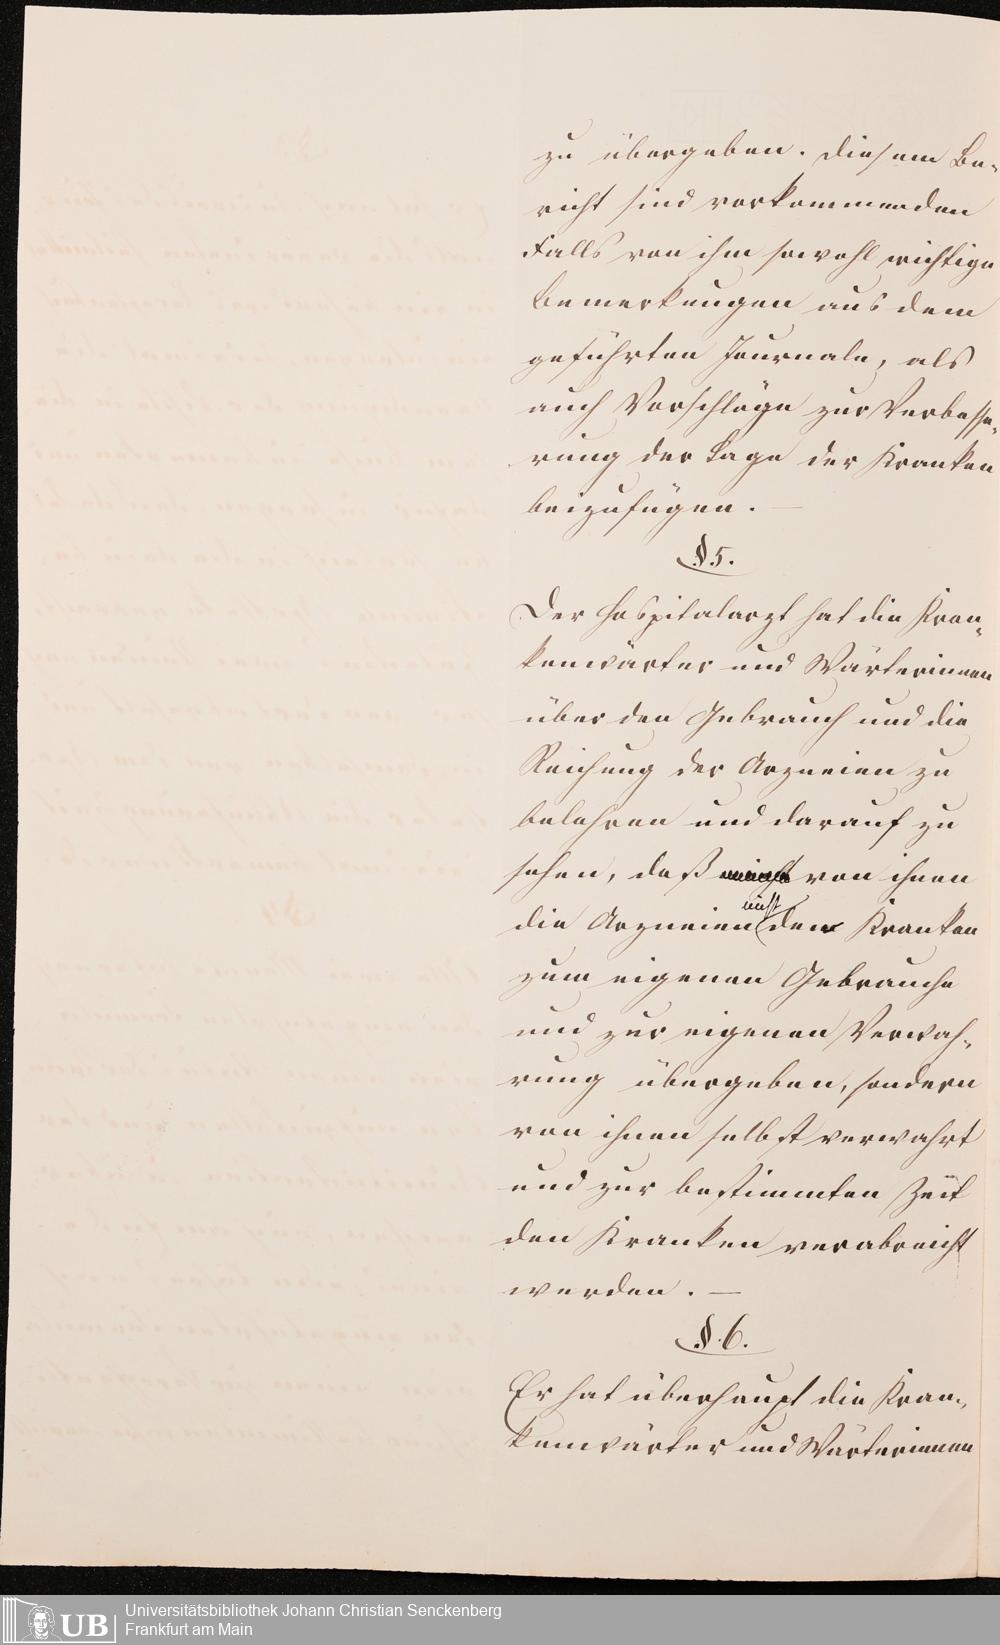 zu übergeben. Diesem Be-
richt sind vorkommenden
Falls von ihm sowohl wichtige
Bemerkungen aus dem
geführten Journale, als
auch Vorschläge zur Verbesse-
rung der Lage der Kranken
beizufügen. —
§ 5.
Der Hospitalarzt hat die Kran-
kenwärter und Wärterinnen
über den Gebrauch und die
Reichung der Arzneien zu
belehren und darauf zu
sehen, daß von ihnen
nicht
die Arzneien den Kranken
zum eigenen Gebrauche
und zur eigenen Verwah-
rung übergeben, sondern
von ihnen selbst verwahrt
und zur bestimmten Zeit
den Kranken verabreicht
werden. —
§. 6.
Er hat überhaupt die Kran-
kenwärter und Wärterinnen
UB
Universitätsbibliothek Johann Christian Senckenberg
Frankfurt am Main